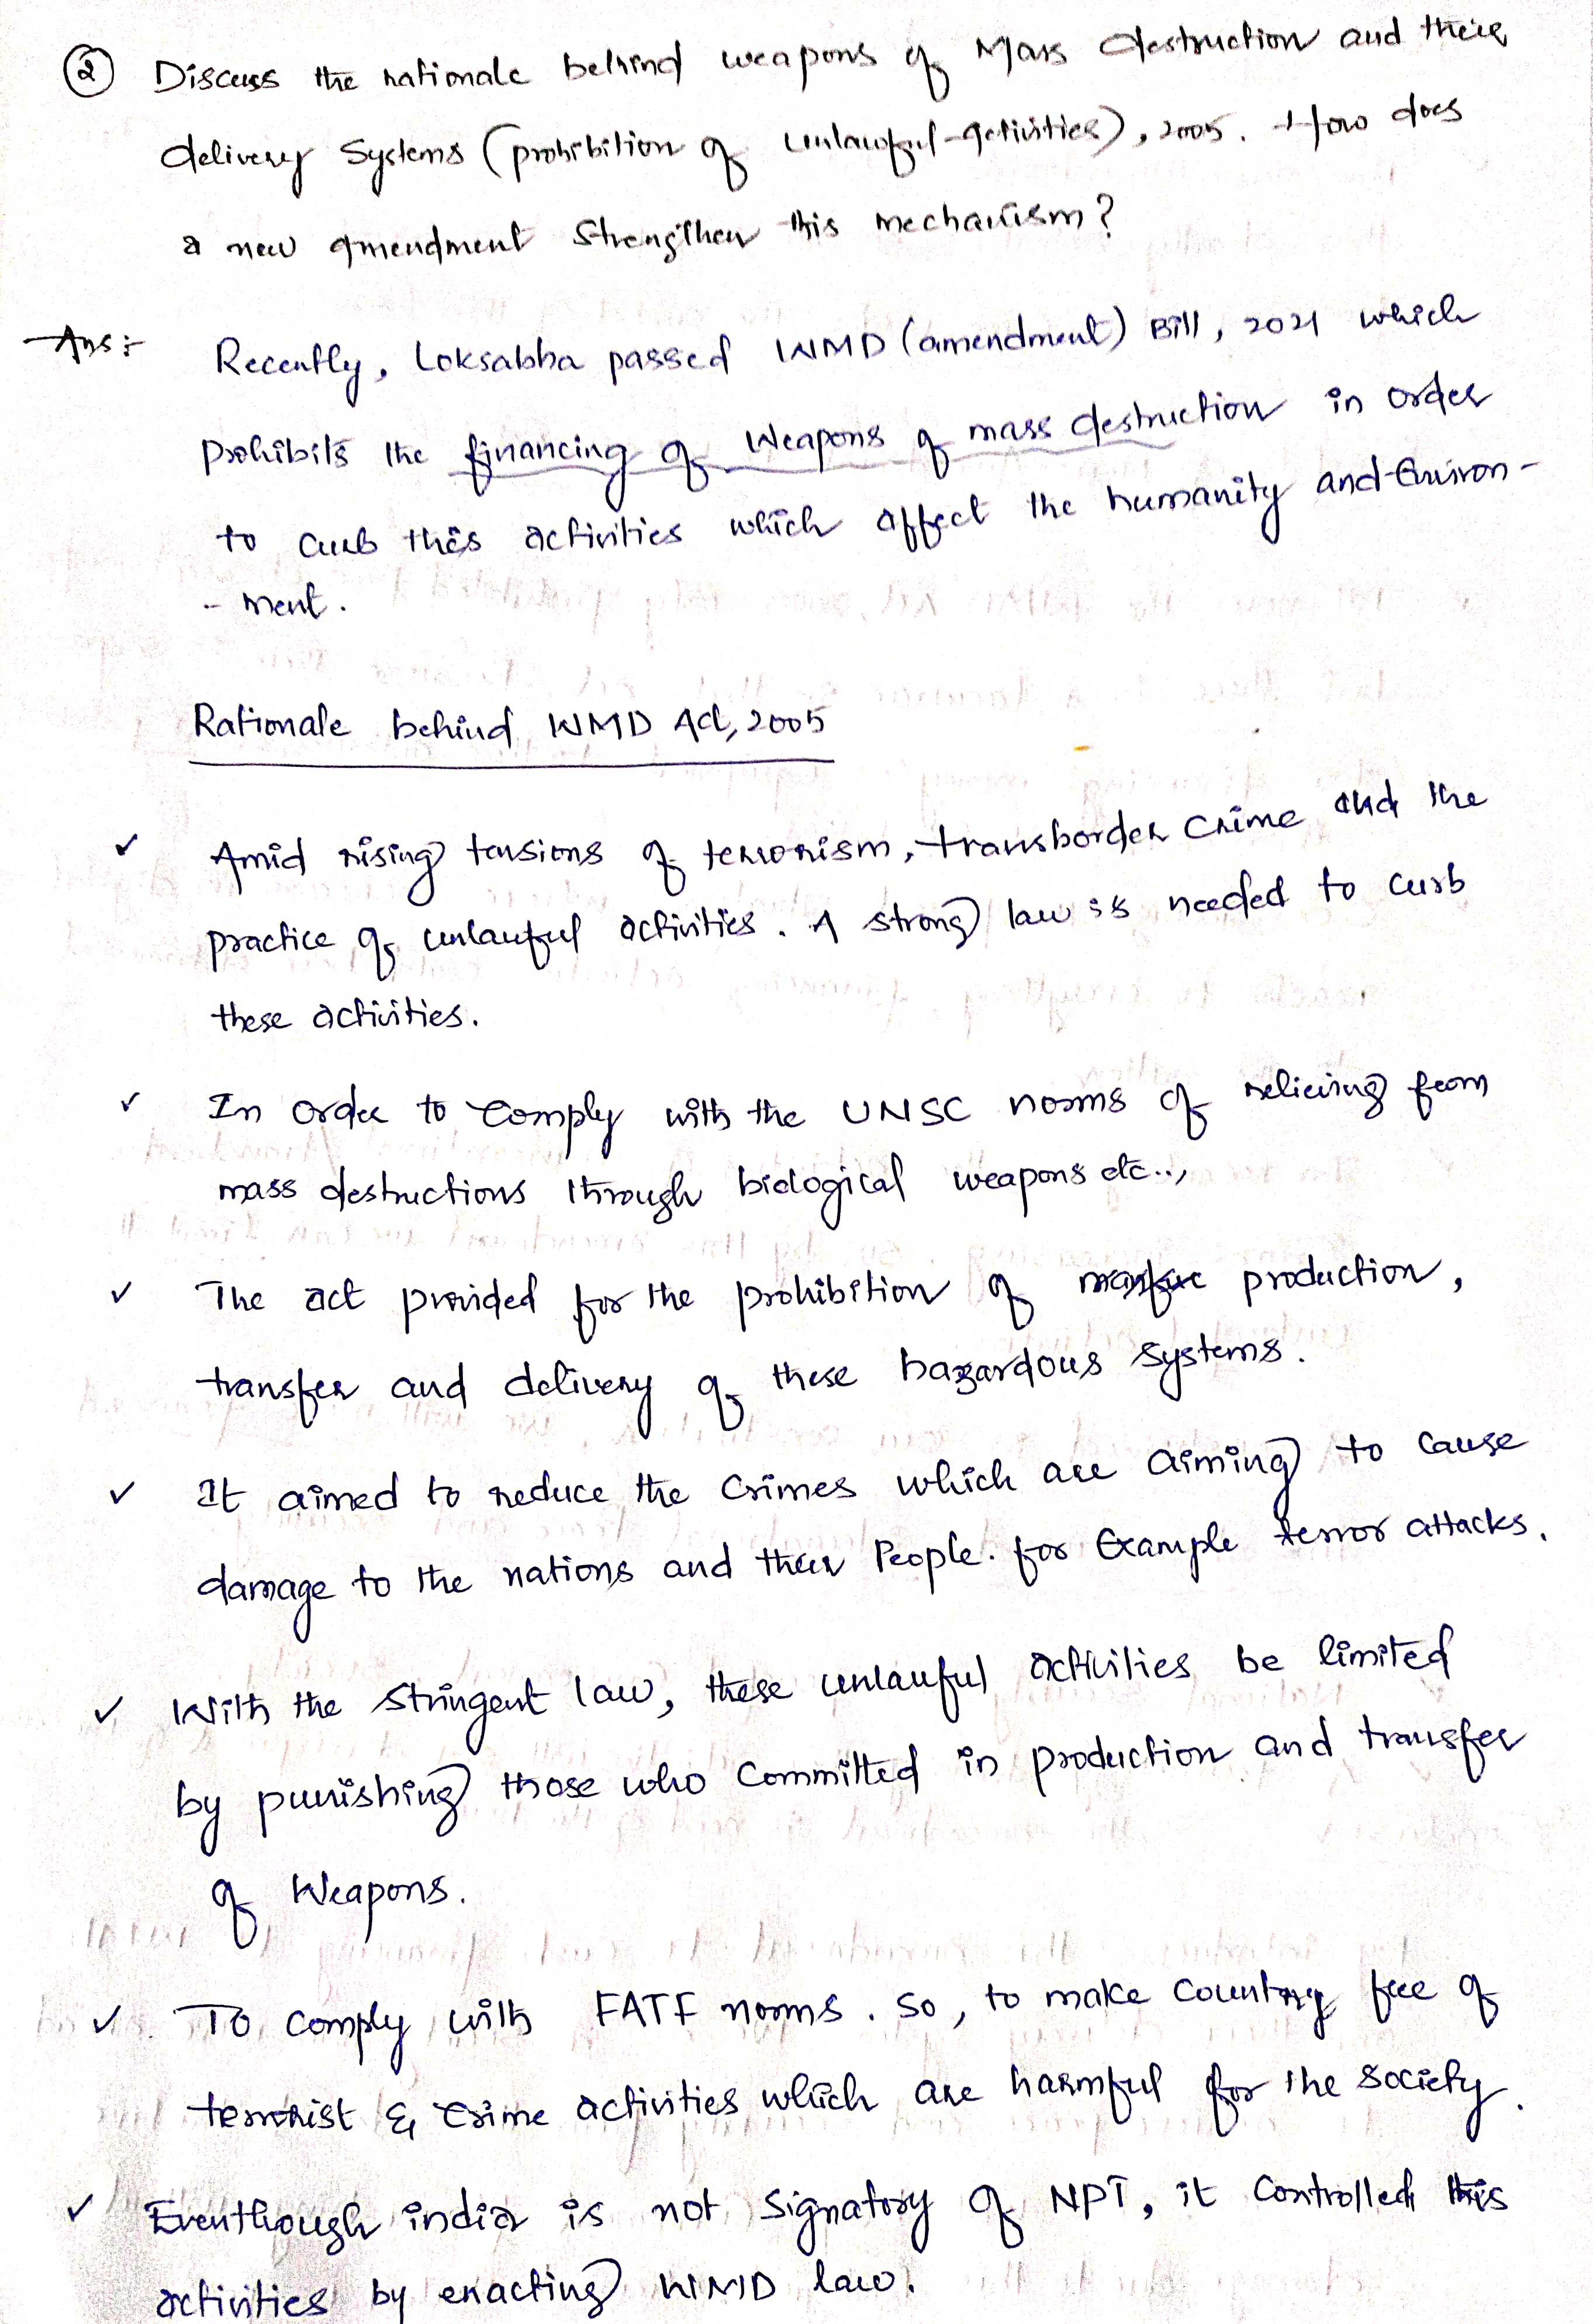 ② Discuss the rationale behind weapons of Mass destruction and their
delivery Systems (prohibition of unlawful-activities), 2005. How does
a new amendment Strengthen this mechanism?
Ans:- Recently, Loksabha passed WMD (amendment) Bill, 2021 which
prohibits the financing of Weapons of mass destruction in order
to curb this activities which affect the humanity and Environ-
-ment.
Rationale behind WMD Act, 2005
✓ Amid rising tensions of terrorism, transborder crime and the
practice of unlawful activities. A strong law is needed to curb
these activities.
✓ In order to comply with the UNSC norms of relieving from
mass destructions through biological weapons etc..,
✓ The act provided for the prohibition of production,
transfer and delivery of these hazardous systems.
✓ It aimed to reduce the crimes which are aiming to cause
damage to the nations and their People. for Example terror attacks.
✓ With the stringent law, these unlawful activities be limited
by punishing those who committed in production and transfer
of Weapons.
✓ To comply with FATF norms. So, to make country free of
terrorist & crime activities which are harmful for the society.
✓ Eventhough india is not signatory of NPT, it controlled this
activities by enacting WMD law.